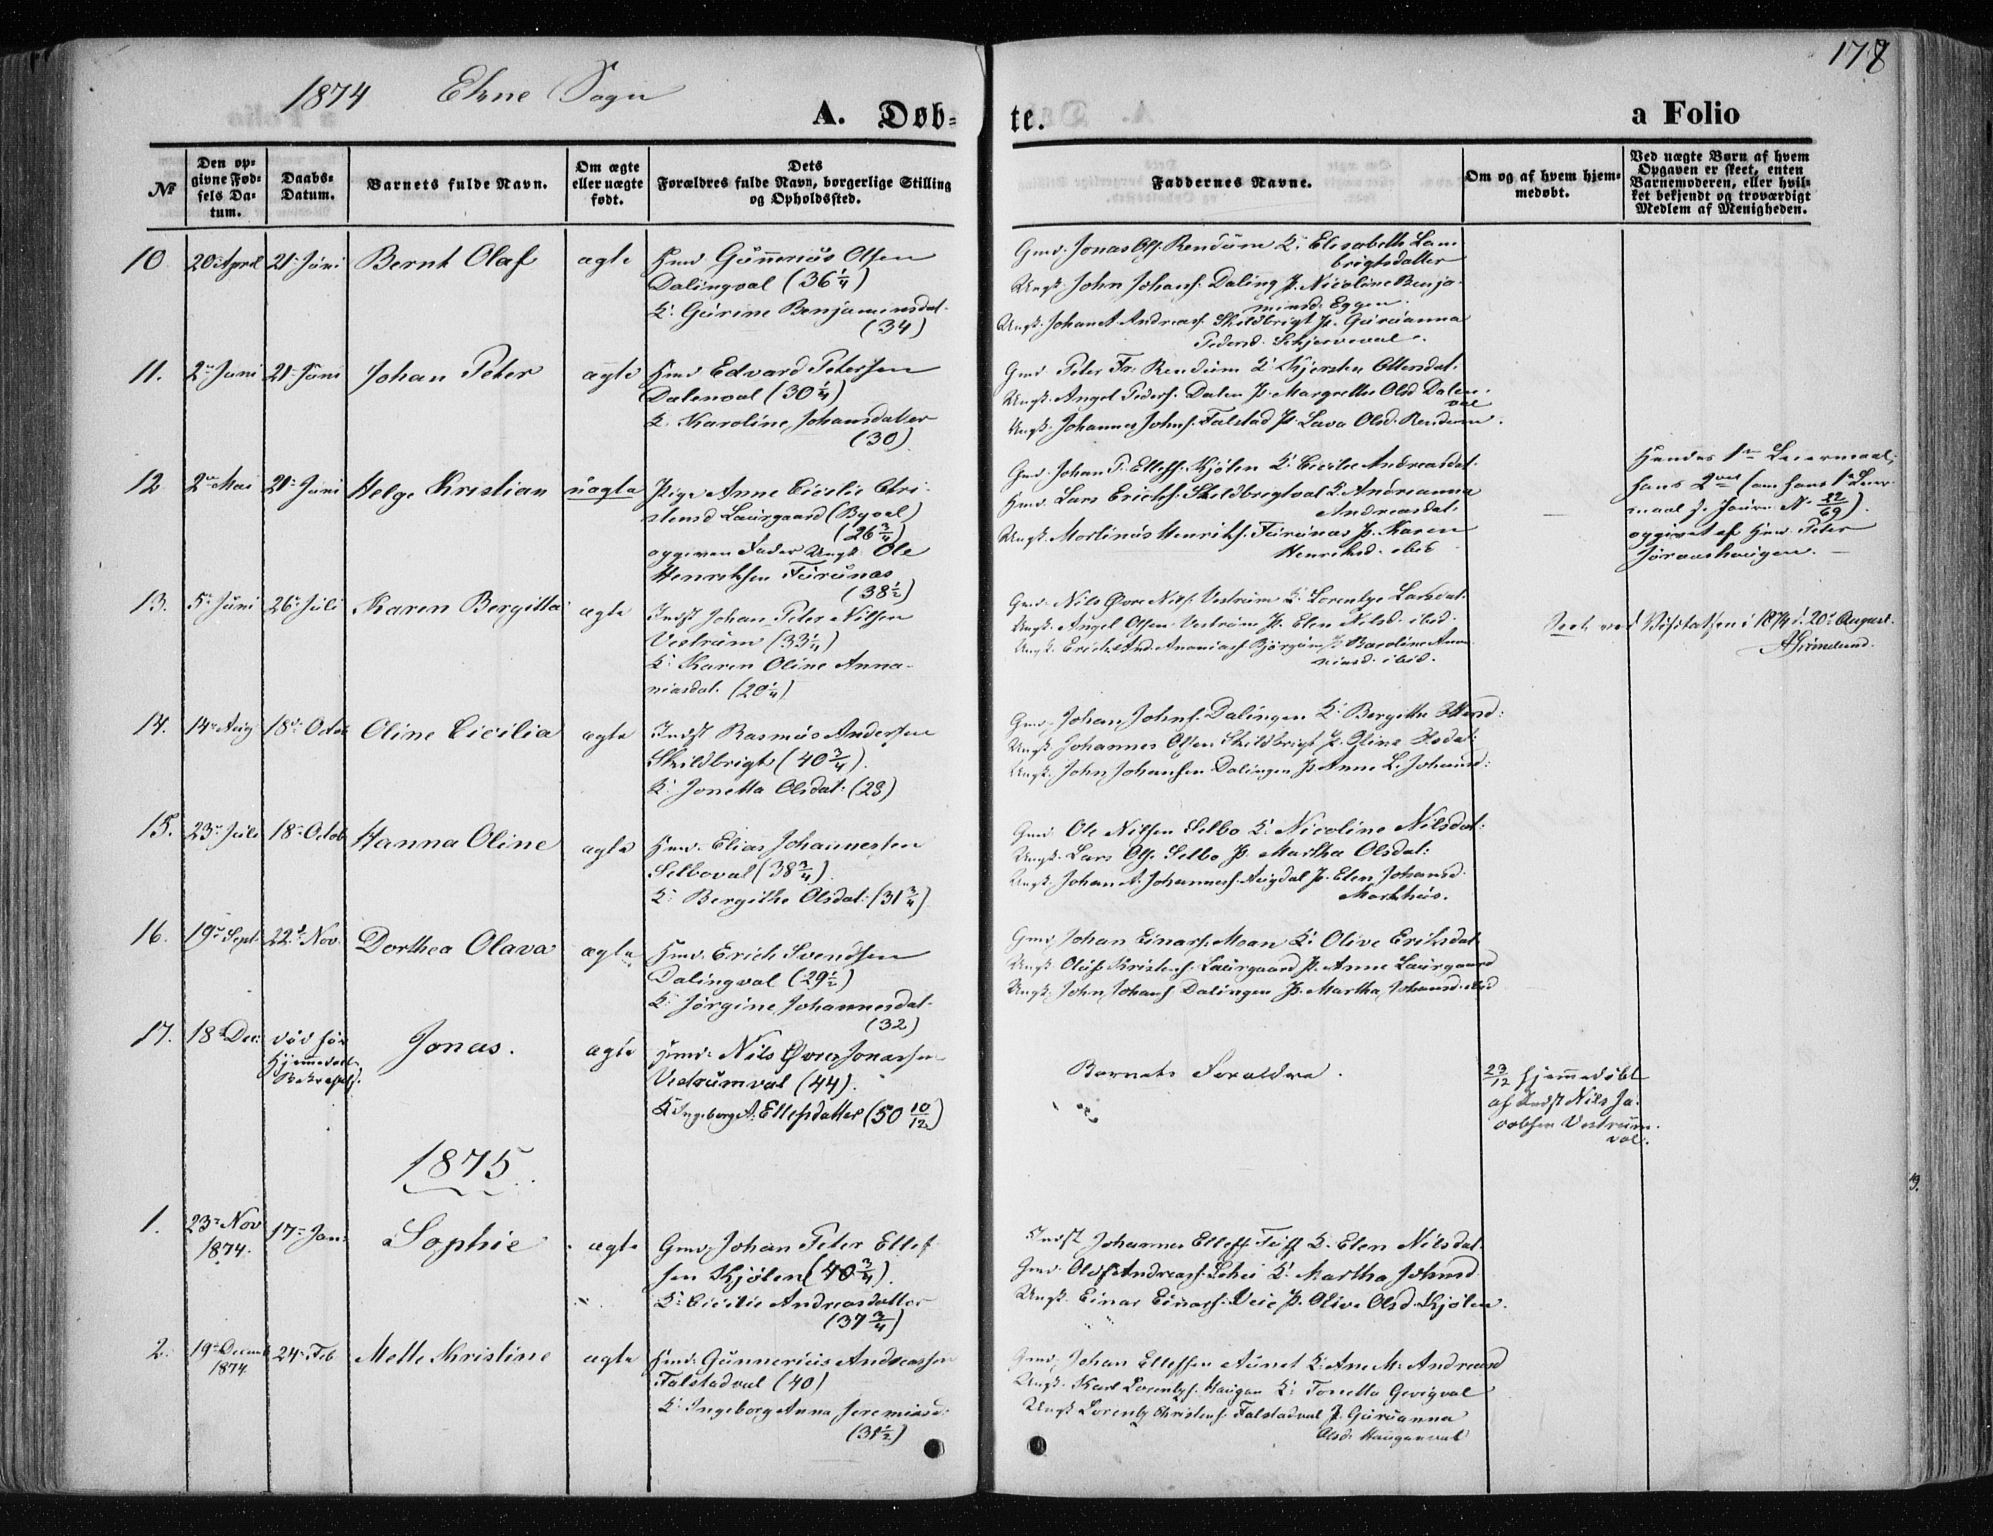 1874 Ekne Sogn
178
A. Døb-
te.
a Folio
No
Den op-
givne Fød-
sels Da-
tum.
Daabs-
Datum.
Barnets fulde Navn.
Om ægte
eller uægte
født.
Dets
Forældres fulde Navn, borgerlige Stilling
og Opholdssted.
Faddernes Navne.
Om og af hvem hjem-
medøbt.
Ved uægte Børn af hvem
Opgaven er skeet, enten
Barnemoderen, eller hvil-
ket bekjendt og troværdigt
Medlem af Menigheden.
10. 20de April 21de Juni Bernt Olaf ægte Hmd Gunnerius Olsen
Dalingval (36 1/4)
K. Gurine Benjaminsdat.
(34)
Gmd. Jonas Ols. Rendum K. Elisabeth Lam-
brigtsdatter
Ungk. John Johans. Daling P. Nicoline Benja-
minsd. Eggen.
Ungk. Johan A. Andreass. Skildbrigt P. Guruanna
Pedersd.
11. 2den Juni 21de Juni Johan Peter ægte Hmd Edvard Petersen
Dalenval (30 1/4)
K. Karoline Johansdatter
(30)
Gmd Peter Fr. Rendum K. Kjersten Ottersdat.
Ungk. Angel Peders. Dalen P. Margrethe Olsd Dalen-
val
Ungk. Johannes Johns. Falstad P. Lava Olsd. Rendum.
12. 2den Mai 21de Juni Helge Kristian uægte Pige Anne Cicilie Chri-
stensd Laurgaard (Byval)
(26 3/4)
opgiven Fader Ungk. Ole
Henriksen Furunes
(38 1/2)
Gmd. Johan P. Ellefs. Kjölen K. Cicilie Andreasdat.
Hmd. Lars Erichs. Skildbrigtval K. Andreanna
Andreasdat.
Ungk. Martinus Henriks. Furunes P. Karen
Henriksd. ibid
Hendes 1ste Leiermaal,
hans 2det (om hans 1ste Leier-
maal se Journ. No 22/69).
opgivet af Hmd. Peter
Joraashaugen.
13. 5te Juni 26de Juli Karen Bergitta ægte Indst Johan Peter Nilsen
Vestrum (33 1/4)
K. Karen Oline Anna-
niasdat. (20 1/4)
Gmd. Nils Øvre Nils. Vestrum K. Lorentze Larsdat.
Ungk. Angel Olsen Vestrum P. Elen Nilsd. ibid.
Ungk. Erich And. Ananiass. Björgum P. Karoline Ana-
niasd. ibid.
Seet ved Visitatsen i 1874 d. 20de August.
AGrimelund.
14. 14de Aug 18de Octob Oline Cicilia ægte Indst Rasmus Andersen
Skildbrigt (40 3/4).
K. Jonetta Olsdat: (23)
Gmd. Johan Johns. Dalingen K. Bergitte
Ungk. Johannes Olsen Skildbrigt P. Oline Olsdat:
Ungk. John Johansen Dalingen P. Anne L. Johansd:
15. 23de Juli 18de Octob Hanna Oline ægte Hmd. Elias Johannessen
Selboval (38 3/4).
K. Bergithe Olsdat: (31 3/4)
Gmd Ole Nilsen Selbo K. Nicoline Nilsdat:
Ungk. Lars Ols. Selbo P. Martha Olsdat:
Ungk. Johan A. Johanness. Augdal P. Elen Johansd.
Markhus.
16. 19de Sept. 22de Nov. Dorthea Olava ægte Hmd. Erich Svendsen
Dalingval (29 1/2)
K. Jörgine Johannesdat.
(32)
Gmd. Johan Einars. Moan K. Olive Eriksdat.
Ungk Olaus Kristens. Laurgaard P. Anne Laurgaard
Ungk. John Johans. Dalingen P. Martha Johansd. ibid
17. 18de Dec: död för
Hjemmedaab.
Bekræft. Jonas. ægte Hmd. Nils Øvre Jonassen
Vestrumval (44).
K. Ingeborg A. Ellefsdatter (50 10/12)
Barnets Forældre.
23/12 hjemmedöbt
af Indst Nils Ja-
cobsen Vestrum-
val.
1875.
1. 23de Nov
1874. 17de Jan. Sophie ægte Gmd. Johan Peter Ellef-
sen Kjölen (40 3/4).
K. Cicilie Andreasdatter
(37 3/4)
Indst Johannes Ellefs. K. Elen Nilsdat.
Gmd. Olof Andreass. K. Martha Johnsd
Ungk. Einar Einars. Veie P. Olive Olsd. Kjölen.
2. 19de Decemb
1874 24de Feb Mette Kristine ægte Hmd. Gunnerius Andreassen
Falstadval (40)
K. Ingeborg Anna Jeremiasd:
(31 1/2)
Gmd. Johan Ellefsen Aunet K. Ane M. Andreasd
Ungk. Karl Lorentzs. Haugan K. Tonetta Gevigval
Ungk Lorentz Christens. Falstadval P. Guruanna
Olsd. Hauganval